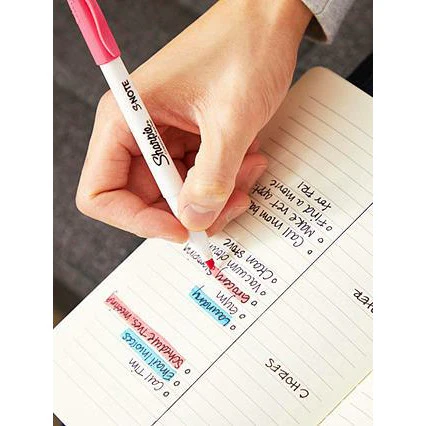 Sharpie
S·NOTE
Call Tim
Email Invoices
Schedule Tues. meeting
CHORES
Laundry
Gym
Grocery
Vacuum
Clean stove
HER
Call mom
Make vet appt
Find a movie
for FRI